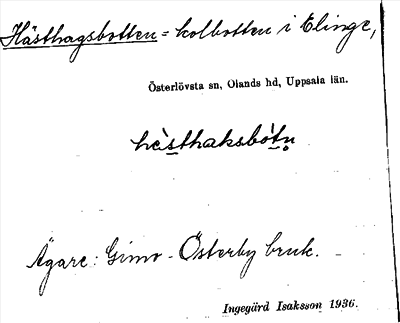 Hästhagsbotten = kolbotten i Elinge,
Österlövsta sn, Olands hd, Uppsala län.
hèsthaksbòtn̥
Ägare: Gimo-Österby bruk.
Ingegärd Isaksson 1936.